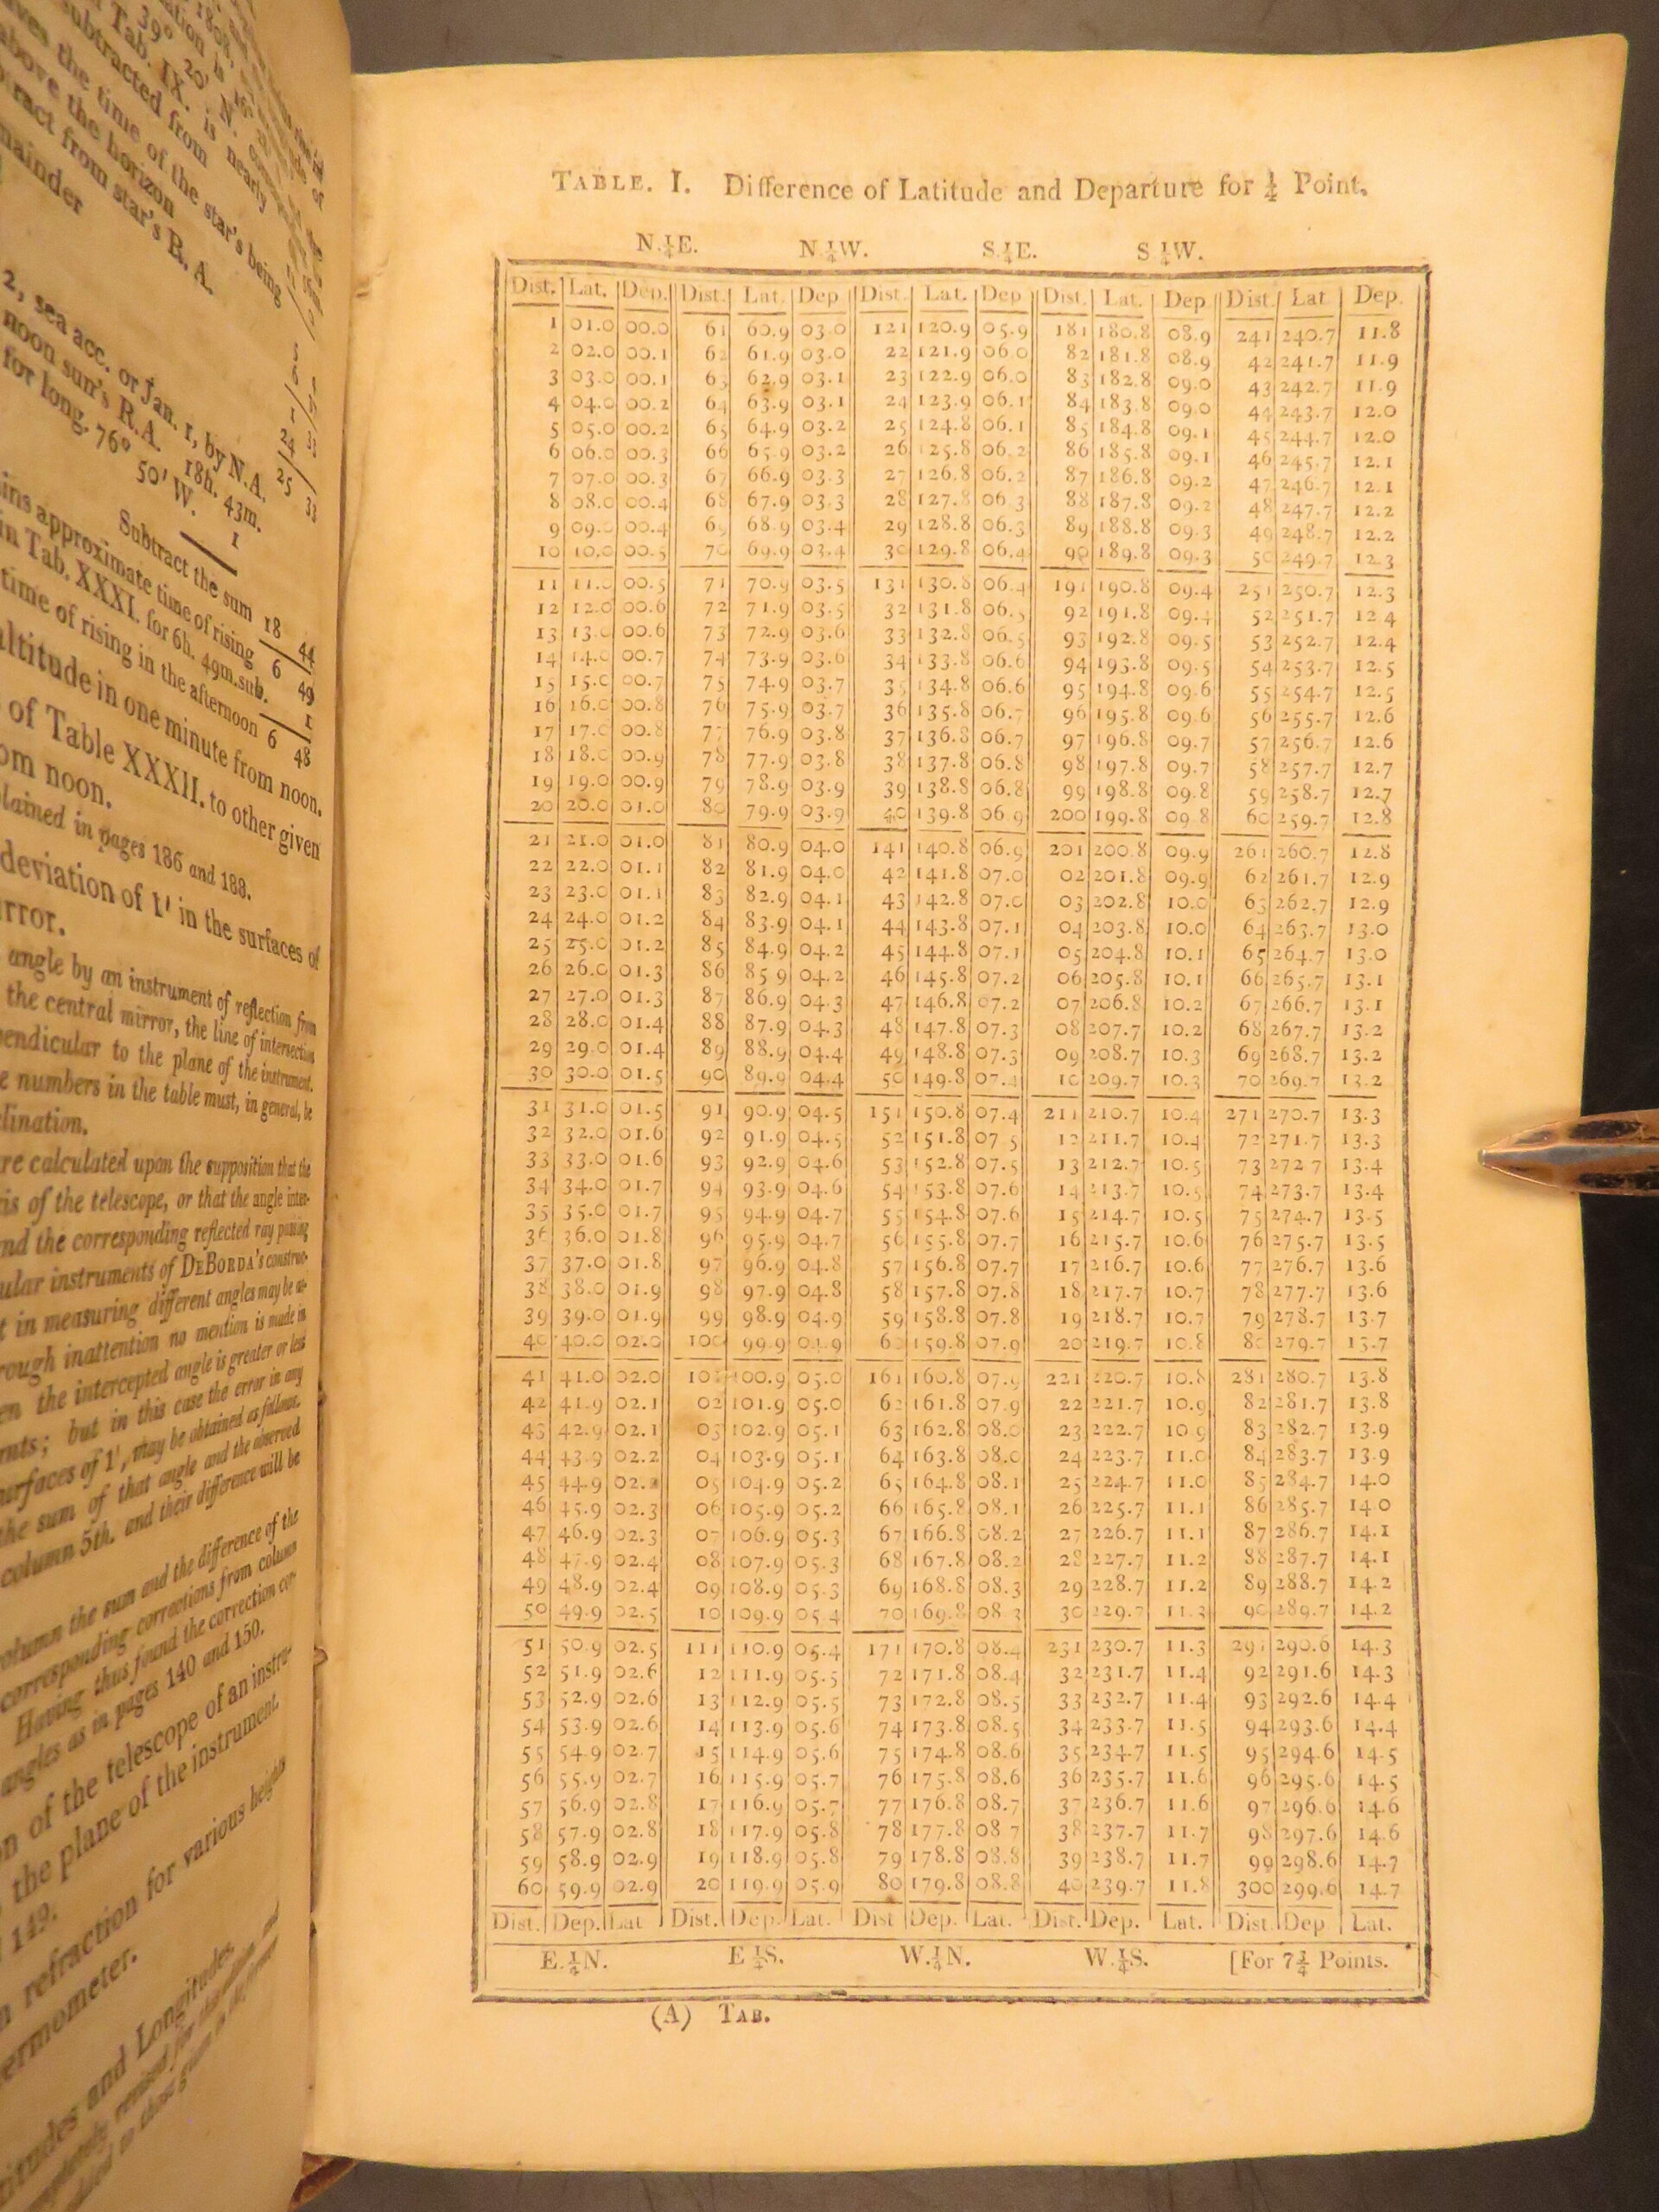 39° 20' N.
Tab. IX. is nearly
subtracted from
the time of the star's being
above the horizon
ract from star's R. A.
mainder
2, sea acc. or Jan. 1, by N.A.
noon sun's R.A. 18h. 43m.
for long. 76° 50' W. 1
Subtract the sum 18 44
ins approximate time of rising 6 49
in Tab. XXXI. for 6h. 49m. sub. 1
time of rising in the afternoon 6 48
altitude in one minute from noon.
of Table XXXII. to other given
om noon.
lained in pages 186 and 188.
deviation of 1' in the surfaces of
irror.
angle by an instrument of reflection from
the central mirror, the line of intersection
endicular to the plane of the instrument.
e numbers in the table must, in general, be
lination.
re calculated upon the supposition that the
is of the telescope, or that the angle inter-
nd the corresponding reflected ray passing
ular instruments of DeBorda's construc-
t in measuring different angles may be as-
rough inattention no mention is made in
en the intercepted angle is greater or less
nts; but in this case the error in any
urfaces of 1', may be obtained as follows.
the sum of that angle and the observed
column 5th. and their difference will be
olumn the sum and the difference of the
corresponding corrections from column
Having thus found the correction cor-
angles as in pages 140 and 150.
on of the telescope of an instru-
the plane of the instrument.
149.
refraction for various heights
ermometer.
itudes and Longitudes
TABLE. I. Difference of Latitude and Departure for ¼ Point.
N.¼E. N.¼W. S.¼E. S.¼W.
Dist. Lat. Dep. Dist. Lat. Dep Dist. Lat. Dep Dist. Lat. Dep Dist. Lat Dep.
1 01.0 00.0 61 60.9 03.0 121 120.9 05.9 181 180.8 08.9 241 240.7 11.8
2 02.0 00.1 62 61.9 03.0 22 121.9 06.0 82 181.8 08.9 42 241.7 11.9
3 03.0 00.1 63 62.9 03.1 23 122.9 06.0 83 182.8 09.0 43 242.7 11.9
4 04.0 00.2 64 63.9 03.1 24 123.9 06.1 84 183.8 09.0 44 243.7 12.0
5 05.0 00.2 65 64.9 03.2 25 124.8 06.1 85 184.8 09.1 45 244.7 12.0
6 06.0 00.3 66 65.9 03.2 26 125.8 06.2 86 185.8 09.1 46 245.7 12.1
7 07.0 00.3 67 66.9 03.3 27 126.8 06.2 87 186.8 09.2 47 246.7 12.1
8 08.0 00.4 68 67.9 03.3 28 127.8 06.3 88 187.8 09.2 48 247.7 12.2
9 09.0 00.4 69 68.9 03.4 29 128.8 06.3 89 188.8 09.3 49 248.7 12.2
10 10.0 00.5 70 69.9 03.4 30 129.8 06.4 90 189.8 09.3 50 249.7 12.3
11 11.0 00.5 71 70.9 03.5 131 130.8 06.4 191 190.8 09.4 251 250.7 12.3
12 12.0 00.6 72 71.9 03.5 32 131.8 06.5 92 191.8 09.4 52 251.7 12 4
13 13.0 00.6 73 72.9 03.6 33 132.8 06.5 93 192.8 09.5 53 252.7 12.4
14 14.0 00.7 74 73.9 03.6 34 133.8 06.6 94 193.8 09.5 54 253.7 12.5
15 15.0 00.7 75 74.9 03.7 35 134.8 06.6 95 194.8 09.6 55 254.7 12.5
16 16.0 00.8 76 75.9 03.7 36 135.8 06.7 96 195.8 09.6 56 255.7 12.6
17 17.0 00.8 77 76.9 03.8 37 136.8 06.7 97 196.8 09.7 57 256.7 12.6
18 18.0 00.9 78 77.9 03.8 38 137.8 06.8 98 197.8 09.7 58 257.7 12.7
19 19.0 00.9 79 78.9 03.9 39 138.8 06.8 99 198.8 09.8 59 258.7 12.7
20 20.0 01.0 80 79.9 03.9 40 139.8 06 9 200 199.8 09 8 60 259.7 12.8
21 21.0 01.0 81 80.9 04.0 141 140.8 06.9 201 200.8 09.9 261 260.7 12.8
22 22.0 01.1 82 81.9 04.0 42 141.8 07.0 02 201.8 09.9 62 261.7 12.9
23 23.0 01.1 83 82.9 04.1 43 142.8 07.0 03 202.8 10.0 63 262.7 12.9
24 24.0 01.2 84 83.9 04.1 44 143.8 07.1 04 203.8 10.0 64 263.7 13.0
25 25.0 01.2 85 84.9 04.2 45 144.8 07.1 05 204.8 10.1 65 264.7 13.0
26 26.0 01.3 86 85 9 04.2 46 145.8 07.2 06 205.8 10.1 66 265.7 13.1
27 27.0 01.3 87 86.9 04.3 47 146.8 07.2 07 206.8 10.2 67 266.7 13.1
28 28.0 01.4 88 87.9 04.3 48 147.8 07.3 08 207.7 10.2 68 267.7 13.2
29 29.0 01.4 89 88.9 04.4 49 148.8 07.3 09 208.7 10.3 69 268.7 13.2
30 30.0 01.5 90 89.9 04.4 50 149.8 07.4 10 209.7 10.3 70 269.7 13.2
31 31.0 01.5 91 90.9 04.5 151 150.8 07.4 211 210.7 10.4 271 270.7 13.3
32 32.0 01.6 92 91.9 04.5 52 151.8 07 5 12 211.7 10.4 72 271.7 13.3
33 33.0 01.6 93 92.9 04.6 53 152.8 07.5 13 212.7 10.5 73 272 7 13.4
34 34.0 01.7 94 93.9 04.6 54 153.8 07.6 14 213.7 10.5 74 273.7 13.4
35 35.0 01.7 95 94.9 04.7 55 154.8 07.6 15 214.7 10.5 75 274.7 13.5
36 36.0 01.8 96 95.9 04.7 56 155.8 07.7 16 215.7 10.6 76 275.7 13.5
37 37.0 01.8 97 96.9 04.8 57 156.8 07.7 17 216.7 10.6 77 276.7 13.6
38 38.0 01.9 98 97.9 04.8 58 157.8 07.8 18 217.7 10.7 78 277.7 13.6
39 39.0 01.9 99 98.9 04.9 59 158.8 07.8 19 218.7 10.7 79 278.7 13.7
40 40.0 02.0 100 99.9 04.9 60 159.8 07.9 20 219.7 10.8 80 279.7 13.7
41 41.0 02.0 101 100.9 05.0 161 160.8 07.9 221 220.7 10.8 281 280.7 13.8
42 41.9 02.1 02 101.9 05.0 62 161.8 07.9 22 221.7 10.9 82 281.7 13.8
43 42.9 02.1 03 102.9 05.1 63 162.8 08.0 23 222.7 10 9 83 282.7 13.9
44 43.9 02.2 04 103.9 05.1 64 163.8 08.0 24 223.7 11.0 84 283.7 13.9
45 44.9 02.2 05 104.9 05.2 65 164.8 08.1 25 224.7 11.0 85 284.7 14.0
46 45.9 02.3 06 105.9 05.2 66 165.8 08.1 26 225.7 11.1 86 285.7 14 0
47 46.9 02.3 07 106.9 05.3 67 166.8 08.2 27 226.7 11.1 87 286.7 14.1
48 47.9 02.4 08 107.9 05.3 68 167.8 08.2 28 227.7 11.2 88 287.7 14.1
49 48.9 02.4 09 108.9 05.3 69 168.8 08.3 29 228.7 11.2 89 288.7 14.2
50 49.9 02.5 10 109.9 05 4 70 169.8 08 3 30 229.7 11.3 90 289.7 14.2
51 50.9 02.5 111 110.9 05.4 171 170.8 08.4 231 230.7 11.3 291 290.6 14.3
52 51.9 02.6 12 111.9 05.5 72 171.8 08.4 32 231.7 11.4 92 291.6 14.3
53 52.9 02.6 13 112.9 05.5 73 172.8 08.5 33 232.7 11.4 93 292.6 14.4
54 53.9 02.6 14 113.9 05.6 74 173.8 08.5 34 233.7 11.5 94 293.6 14.4
55 54.9 02.7 15 114.9 05.6 75 174.8 08.6 35 234.7 11.5 95 294.6 14.5
56 55.9 02.7 16 115.9 05.7 76 175.8 08.6 36 235.7 11.6 96 295.6 14.5
57 56.9 02.8 17 116.9 05.7 77 176.8 08.7 37 236.7 11.6 97 296.6 14.6
58 57.9 02.8 18 117.9 05.8 78 177.8 08 7 38 237.7 11.7 98 297.6 14.6
59 58.9 02.9 19 118.9 05.8 79 178.8 08.8 39 238.7 11.7 99 298.6 14.7
60 59.9 02.9 20 119.9 05.9 80 179.8 08.8 40 239.7 11.8 300 299.6 14.7
Dist. Dep. Lat Dist. Dep. Lat. Dist Dep. Lat. Dist. Dep. Lat. Dist. Dep Lat.
E.¼N. E ¼S. W.¼N. W.¼S. [For 7¾ Points.
(A) TAB.